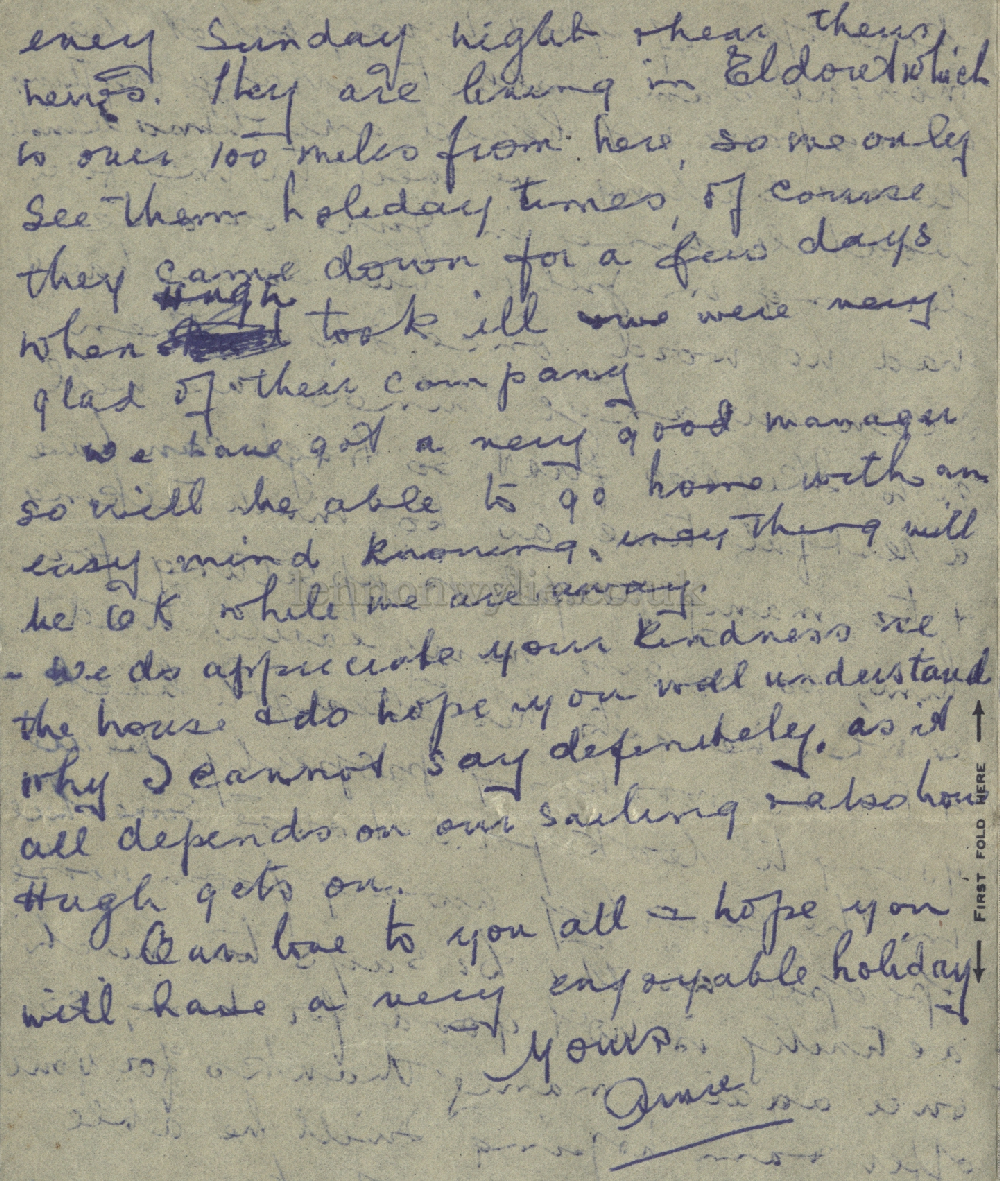 every Sunday night & hear their
news. They are living in Eldoret which
is over 100 miles from here, so we only
see them holiday times, of course
they came down for a few days
when Hugh took ill & we were very
glad of their company
we have got a very good manager
so will be able to go home with an
easy mind knowing, everything will
be OK while we are away.
- We do appreciate your kindness re
the house & do hope you will understand
why I cannot say definitely, as it
all depends on our sailing & also how
Hugh gets on.
Our love to you all & hope you
will have a very enjoyable holiday
Yours
Annie
FIRST FOLD HERE